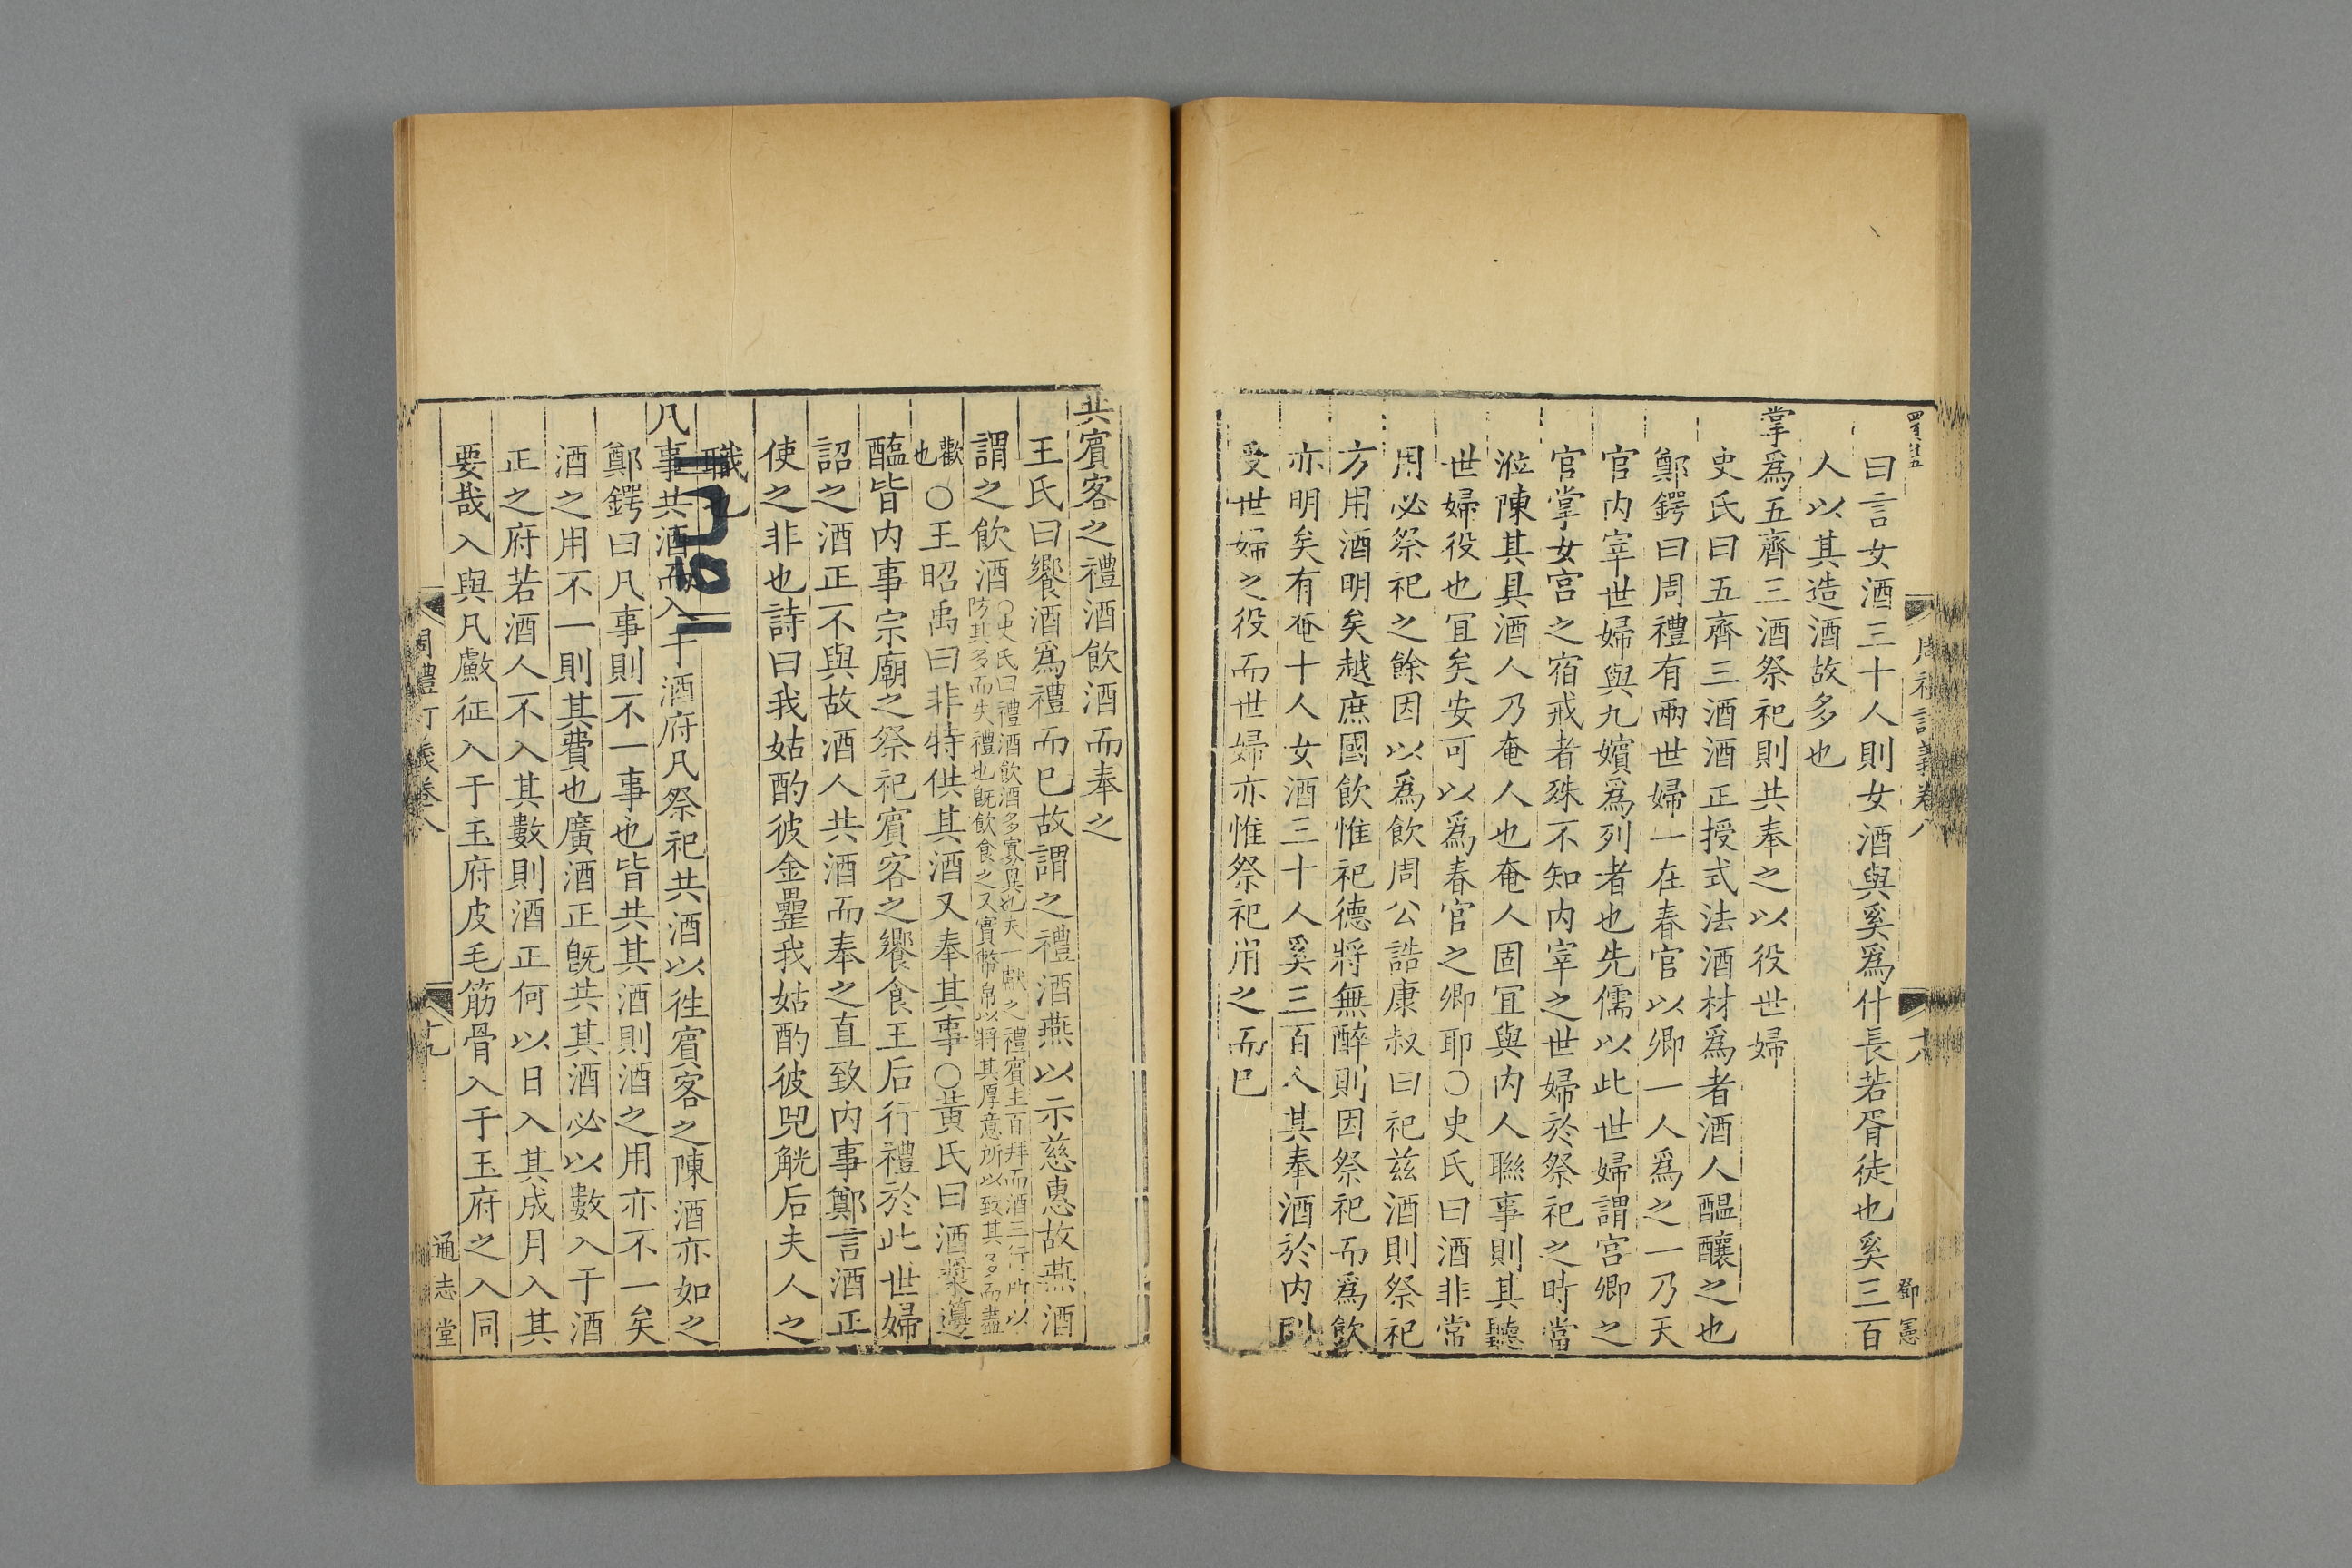 曰言女酒三十人則女酒與奚爲什長若胥徒也奚三百
人以其造酒故多也
掌爲五齊三酒祭祀則共奉之以役世婦
史氏曰五齊三酒酒正授式法酒材爲者酒人醞釀之也
鄭鍔曰周禮有兩世婦一在春官以卿一人爲之一乃天
官内宰世婦與九嬪爲列者也先儒以此世婦謂宮卿之
官掌女宮之宿戒者殊不知内宰之世婦於祭祀之時當
涖陳其具酒人乃奄人也奄人固宜與内人聮事則其聽
世婦役也宜矣安可以爲春官之卿耶○史氏曰酒非常
用必祭祀之餘因以爲飲周公誥康叔曰祀兹酒則祭祀
方用酒明矣越庶國飲惟祀德將無醉則因祭祀而爲飲
亦明矣有奄十人女酒三十人奚三百人其奉酒於内則
受世婦之役而世婦亦惟祭祀用之而已
周禮訂義卷八
十八
鄧憲
共賓客之禮酒飲酒而奉之
王氏曰饗酒爲禮而已故謂之禮酒燕以示慈惠故燕酒
謂之飲酒○史氏曰禮酒飲酒多寡異也夫一獻之禮賓主百拜而酒三行所以
防其多而失禮也既飲食之又實幣帛以將其厚意所以致其多而盡
歡也○王昭禹曰非特供其酒又奉其事○黄氏曰酒漿籩
醢皆内事宗廟之祭祀賓客之饗食王后行禮於此世婦
詔之酒正不與故酒人共酒而奉之直致内事鄭言酒正
使之非也詩曰我姑酌彼金罍我姑酌彼兕觥后夫人之
職也
凡事共酒而入于酒府凡祭祀共酒以徃賓客之陳酒亦如之
鄭鍔曰凡事則不一事也皆共其酒則酒之用亦不一矣
酒之用不一則其費也廣酒正既共其酒必以數入于酒
正之府若酒人不入其數則酒正何以日入其成月入其
要哉入與凡䱷征入于玉府皮毛筋骨入于玉府之入同
周禮訂義卷八
十九
通志堂